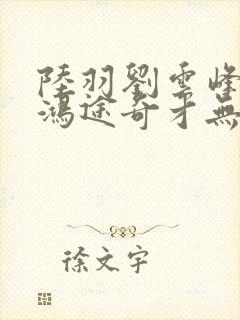 陸羽劉雲峰
鴻途奇才無
徐文宇